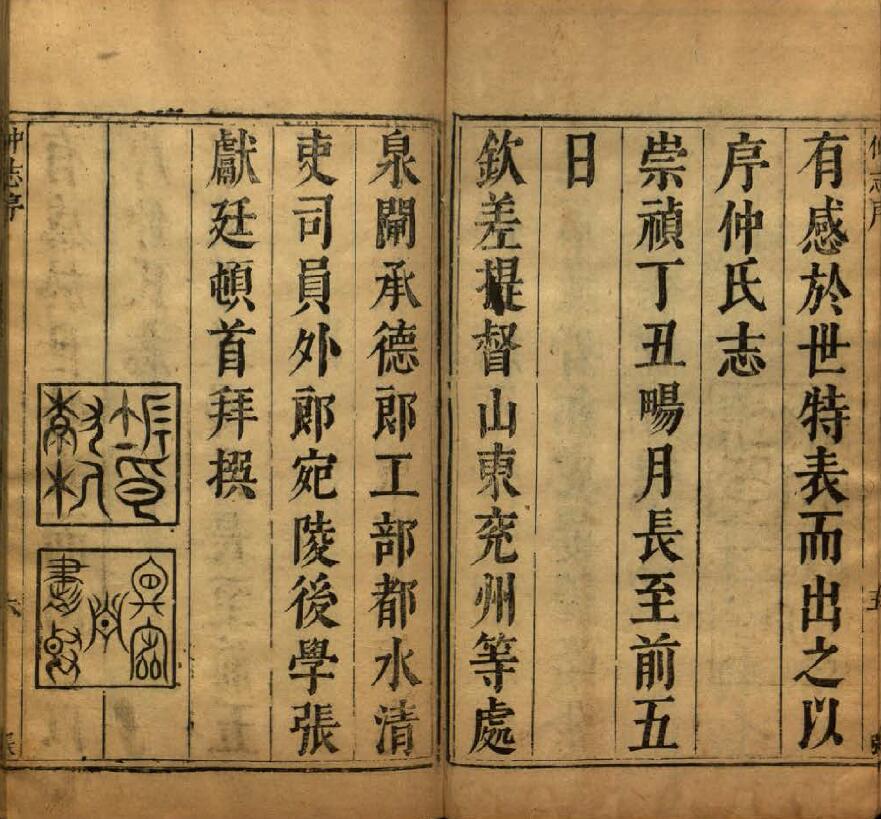 有感於世特表而出之以
序仲氏志
崇禎丁丑暢月長至前五
日
欽差提督山東兖州等處
泉閘承德郎工部都水清
吏司員外郎宛陵後學張
獻廷頓首拜撰
仲志序
六